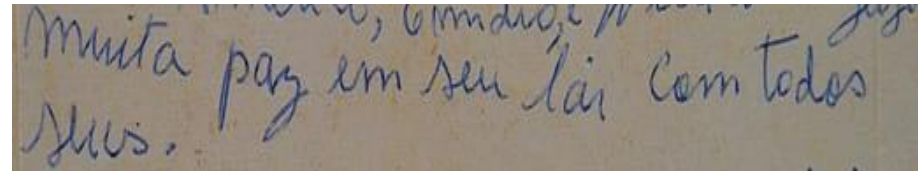 muita paz em seu lár com todos
seus.